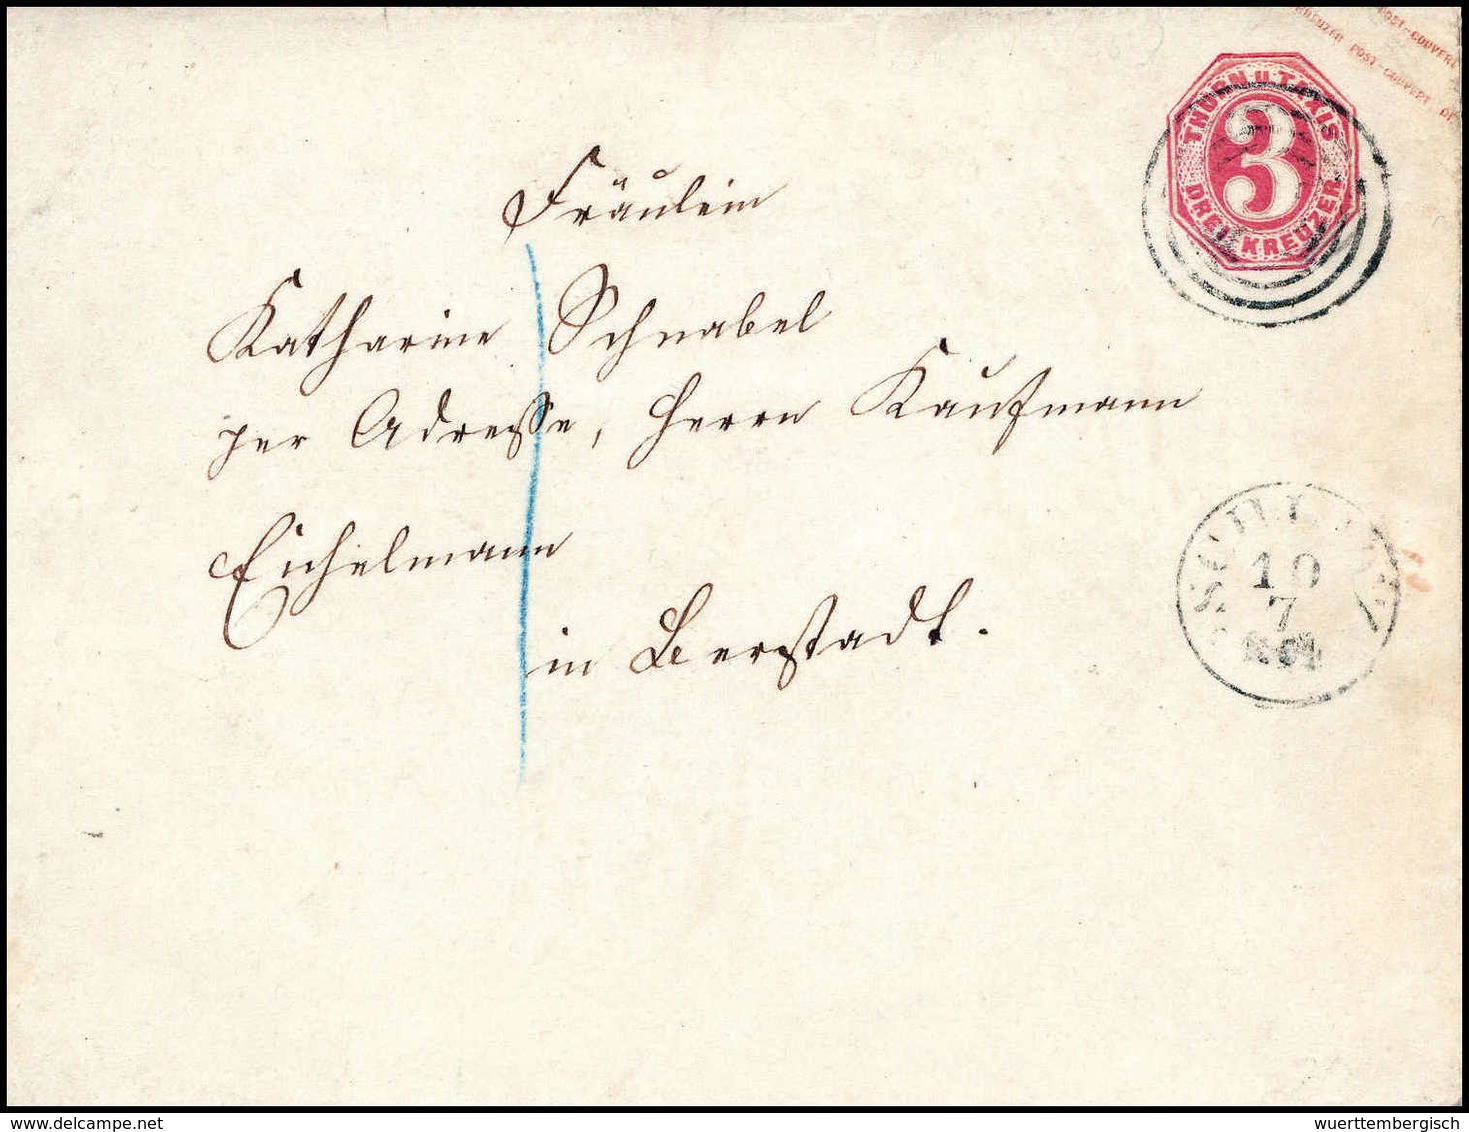 POST-COUVERT
KREUZER POST-COUVERT
THURN U. TAXIS
3
DREI KREUZER
Fräulein
Katharine Schnabel
per Adresse, Herrn Kaufmann
Eichelmann
in Berstadt.
10
7
wuerttembergisch